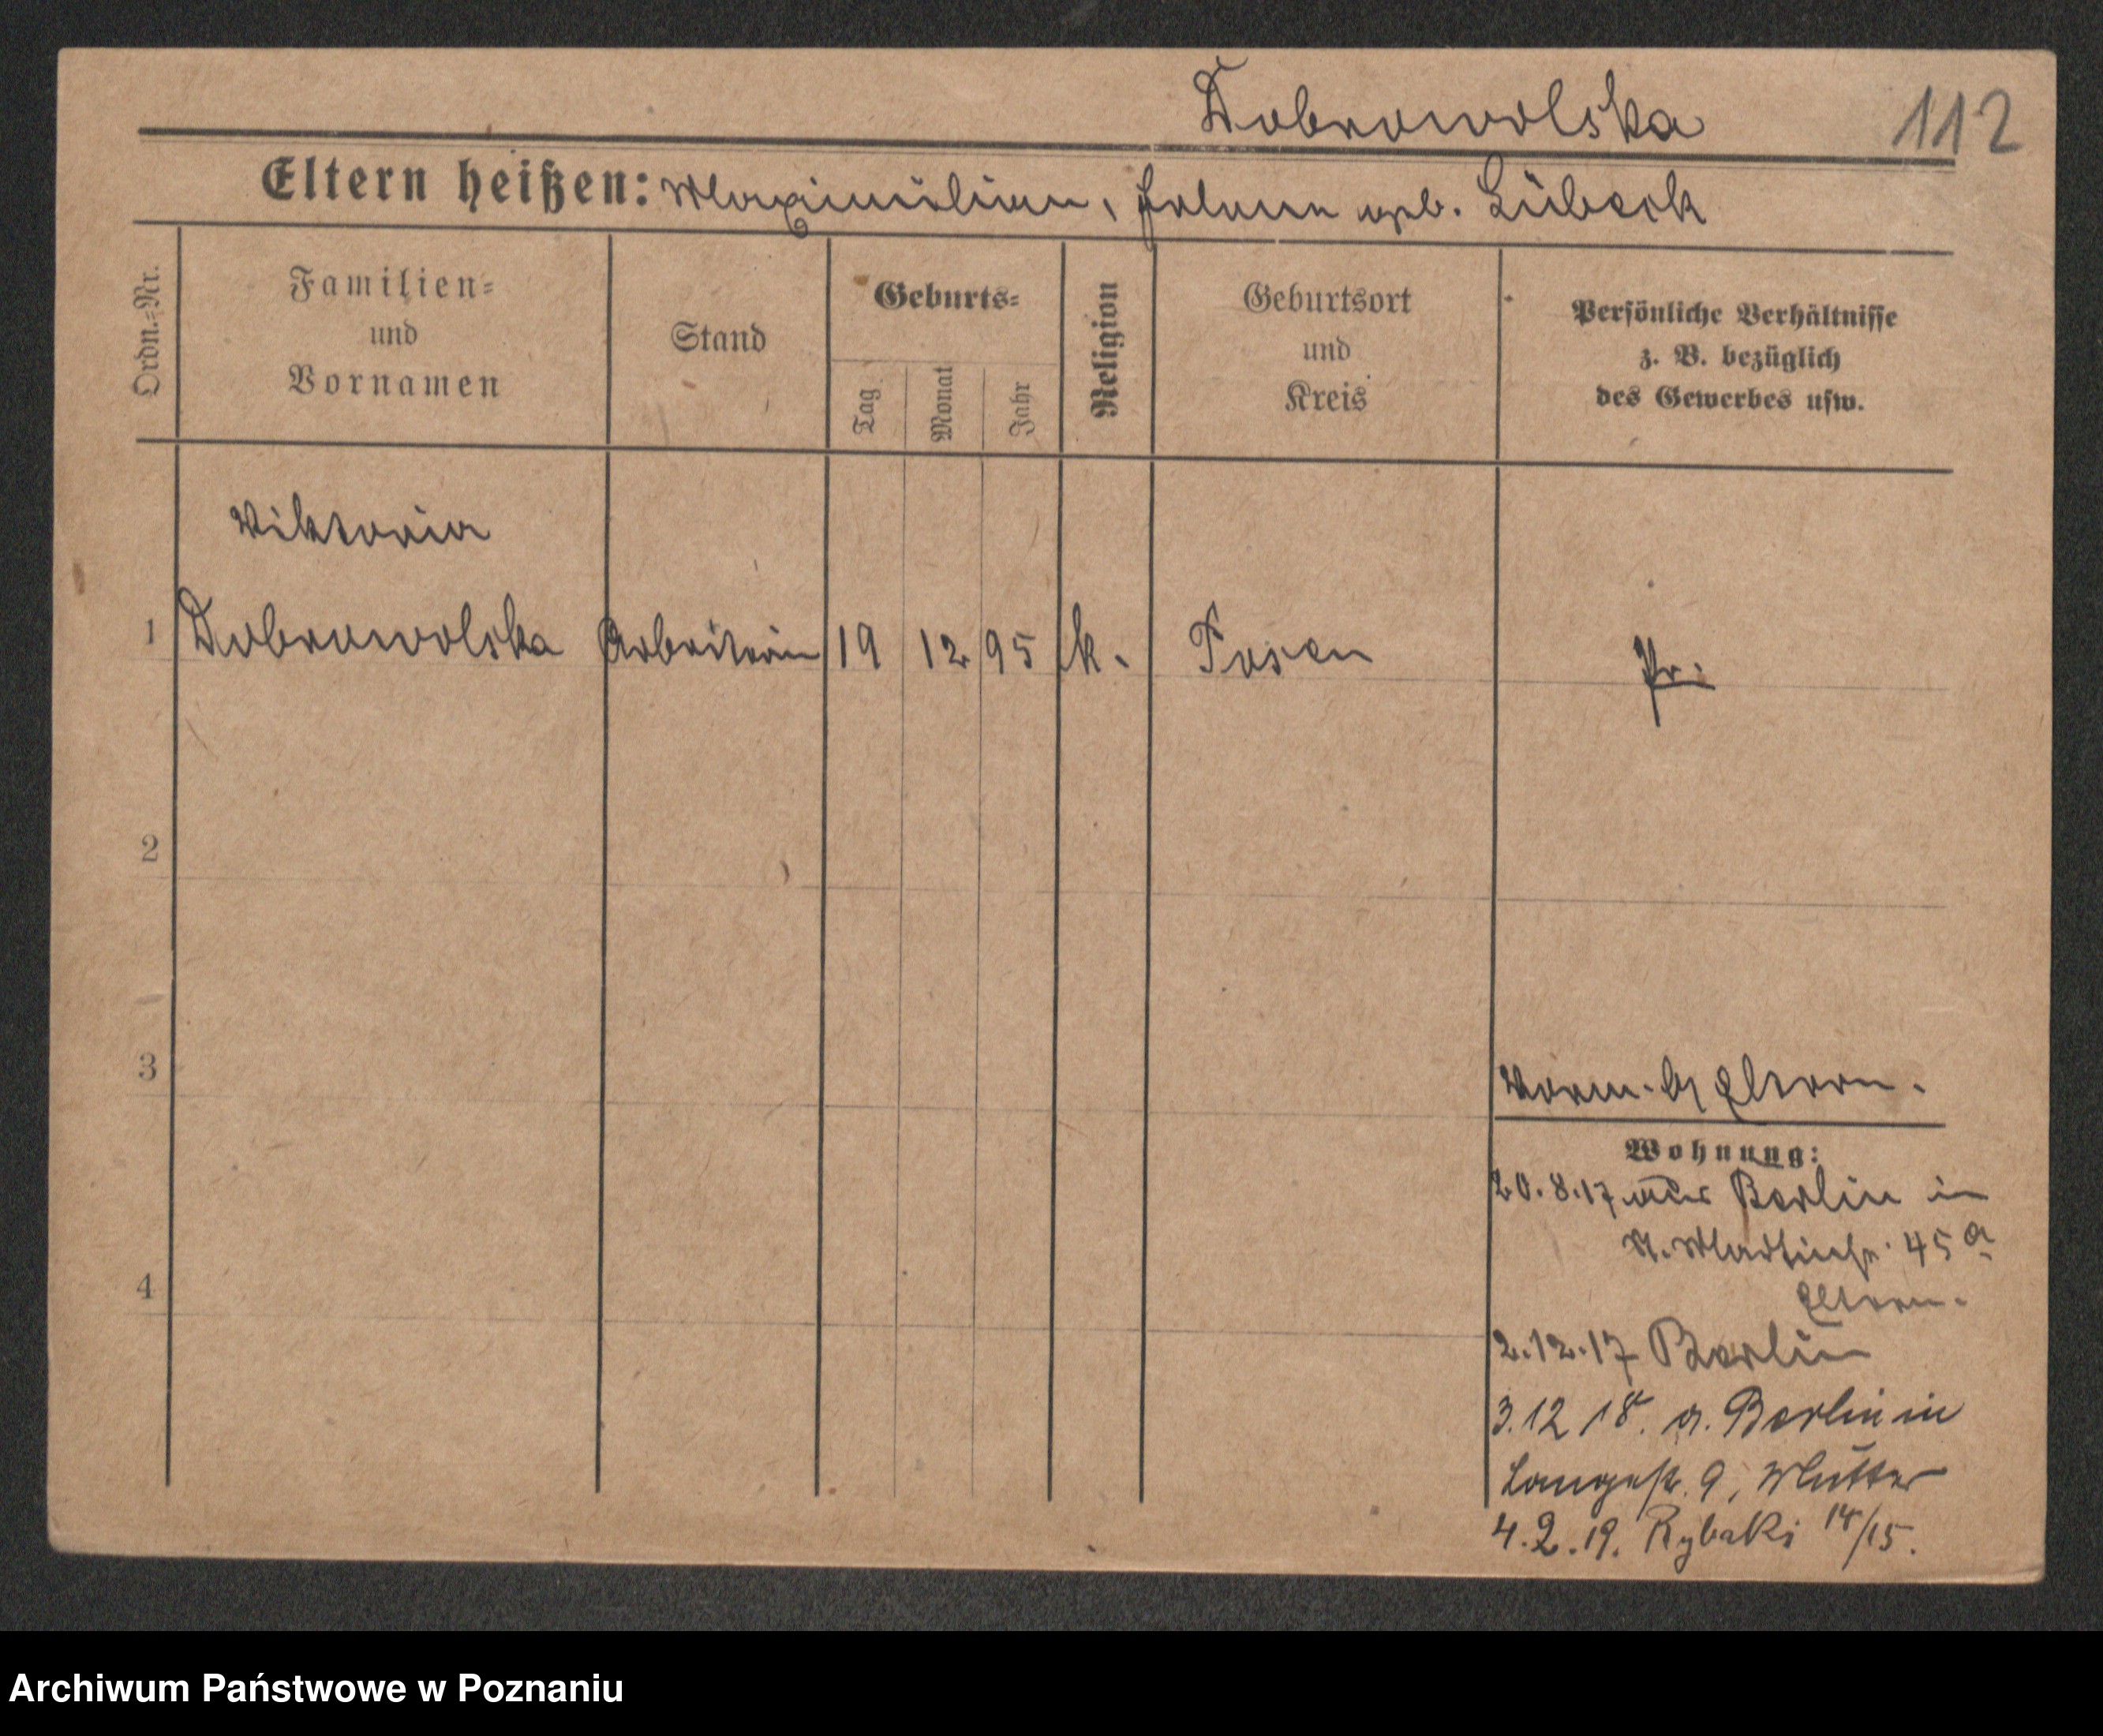 Dobrowolska 112
Eltern heißen: Maximilian, Helene geb. Lübeck
Ordn.=Nr.
Familien=
und
Vornamen
Stand
Geburts=
Tag
Monat
Jahr
Religion
Geburtsort
und
Kreis
Persönliche Verhältnisse
z. B. bezüglich
des Gewerbes usw.
Viktoria
1 Dobrowolska Arbeiterin 19 12 95 k. Posen Pr.
2
3
Eltern.
Wohnung:
20.8.17 aus Berlin in
St. Martinstr. 45a
Eltern.
4
2.12.17 Berlin
3.12 18. a. Berlin in
Langestr. 9, Mutter
4.2.19. Rybaki 14/15.
Archiwum Państwowe w Poznaniu